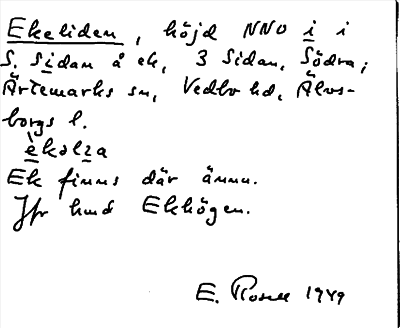 Ekeliden, höjd NNO i i
S. Sidan å ek, 3 Sidan, Södra;
Ärtemarks sn, Vedbo hd, Älvs-
borgs l.
Ek finns där ännu.
Jfr hmd Ekhögen.
E. Rosell 1949